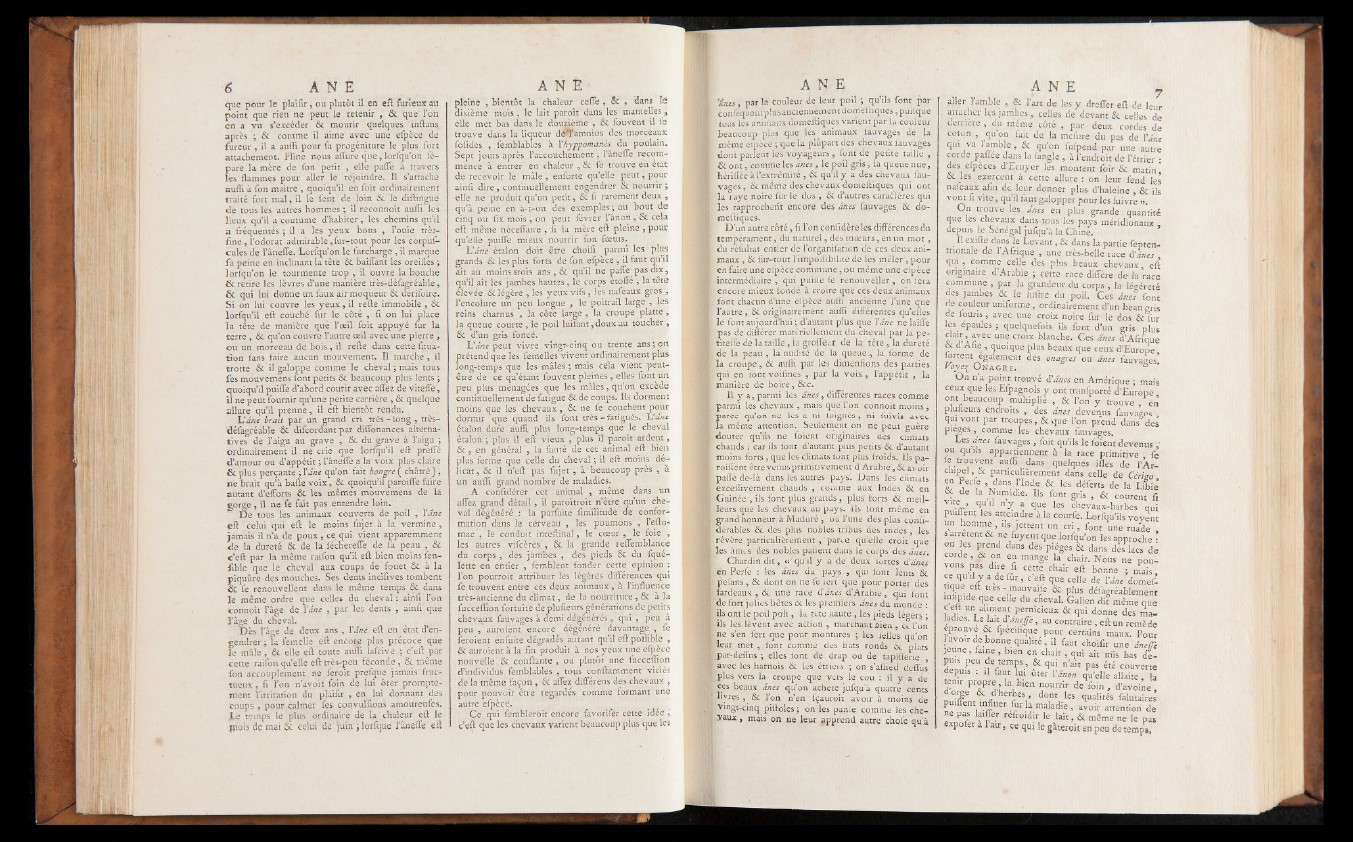 6 A N E
que pour le plaiſir, ou plutôt il en eſt furieux au
point que rien ne peut le retenir, & que l'on
en a vu s'excéder & mourir quelques inſtans
après ; & comme il aime avec une eſpèce de
fureur, il a auſſi pour ſa progéniture le plus fort
attachement. Pline nous aſſure que, lorſqu'on ſé-
pare la mère de ſon petit, elle paſſe à travers
les flammes pour aller le rejoindre. Il s'attache
auſſi à ſon maître, quoiqu'il en ſoit ordinairement
traité fort mal, il le ſent de loin & le diſtingue
de tous les autres hommes ; il reconnoît auſſi les
lieux qu'il a coutume d'habiter, les chemins qu'il
a fréquentés ; il a les yeux bons, l'ouïe très-
fine, l'odorat admirable, ſur-tout pour les corpuſ-
cules de l'âneſſe. Lorſqu'on le ſurcharge, il marque
ſa peine en inclinant la tête & baiſſant les oreilles ;
lorſqu'on le tourmente trop, il ouvre la bouche
& retire les lèvres d'une manière très-déſagréable,
& qui lui donne un faux air moqueur & dériſoire.
Si on lui couvre les yeux, il reſte immobile, &
lorſqu'il eſt couché ſur le côté, ſi on lui place
la tête de manière que l'œil ſoit appuyé ſur la
terre, & qu'on couvre l'autre œil avec une pierre,
ou un morceau de bois, il reſte dans cette ſitua-
tion ſans faire aucun mouvement. Il marche, il
trotte & il galoppe comme le cheval ; mais tous
ſes mouvemens ſont petits & beaucoup plus lents ;
quoiqu'il puiſſe d'abord courir avec aſſez de vîteſſe,
il ne peut fournir qu'une petite carrière, & quelque
allure qu'il prenne, il eſt bientôt rendu.
L'âne brait par un grand cri très-long, très-
déſagréable & diſcordant par diſſonances alterna-
tives de l'aigu au grave, & du grave à l'aigu ;
ordinairement il ne crie que lorſqu'il eſt preſſé
d'amour ou d'appétit ; l'âneſſe a la voix plus claire
& plus perçante ; l'âne qu'on fait hongre (châtré),
ne brait qu'à baſſe voix, & quoiqu'il paroiſſe faire
autant d'efforts & les mêmes mouvemens de la
gorge, il ne ſe fait pas entendre loin.
De tous les animaux couverts de poil, l'âne
eſt celui qui eſt le moins ſujet à la vermine,
jamais il n'a de poux, ce qui vient apparemment
de la dureté & de la ſéchereſſe de ſa peau, &
c'eſt par la même raiſon qu'il eſt bien moins ſen-
ſible que le cheval aux coups de fouet & à la
piquûre des mouches. Ses dents inciſives tombent
& ſe renouvellent dans le même temps & dans
le même ordre que celles du cheval : ainſi l'on
connoît l'âge de l'âne, par les dents, ainſi que
l'âge du cheval.
Dès l'âge de deux ans, l'âne eſt en état d'en-
gendrer ; la femelle eſt encore plus précoce que
le mâle, & elle eſt toute auſſi laſcive ; c'eſt par
cette raiſon qu'elle eſt très-peu féconde, & même
ſon accouplement ne ſeroit preſque jamais fruc-
tueux, ſi l'on n'avoit ſoin de lui ôter prompte-
ment l'irritation du plaiſir, en lui donnant des
coups, pour calmer ſes convulſions amoureuſes.
Le temps le plus ordinaire de la chaleur eſt le
mois de mai & celui de juin ; lorſque l'âneſſe eſt
A N E
pleine, bientôt la chaleur ceſſe, &, dans le
dixième mois, le lait paroît dans les mamelles,
elle met bas dans le douzième, & ſouvent il ſe
trouve dans la liqueur de l'amnios des morceaux
ſolides, ſemblables à l'hyppomanès du poulain.
Sept jours après l'accouchement, l'âneſſe recom-
mence à entrer en chaleur, & ſe trouve en état
de recevoir le mâle, enſorte qu'elle peut, pour
ainſi dire, continuellement engendrer & nourrir ;
elle ne produit qu'un petit, & ſi rarement deux,
qu'à peine en a-t-on des exemples ; au bout de
cinq ou ſix mois, on peut ſévrer l'ânon, & cela
eſt même néceſſaire, ſi la mère eſt pleine, pour
qu'elle puiſſe mieux nourrir ſon fœtus.
L'âne étalon doit être choiſi parmi les plus
grands & les plus forts de ſon eſpèce, il faut qu'il
ait au moins trois ans, & qu'il ne paſſe pas dix,
qu'il ait les jambes hautes, le corps étoffé, la tête
élevée & légère, les yeux vifs, les naſeaux gros,
l'encolure un peu longue, le poitrail large, les
reins charnus, la côte large, la croupe platte,
la queue courte, le poil luiſant, doux au toucher,
& d'un gris foncé.
L'âne peut vivre vingt-cinq ou trente ans ; on
prétend que les femelles vivent ordinairement plus
long-temps que les mâles ; mais cela vient peut-
être de ce qu'étant ſouvent pleines, elles ſont un
peu plus ménagées que les mâles, qu'on excède
continuellement de fatigue & de coups. Ils dorment
moins que les chevaux, & ne ſe couchent pour
dormir que quand ils ſont très-fatigués. L'âne
étalon dure auſſi plus long-temps que le cheval
étalon ; plus il eſt vieux, plus il paroît ardent,
&, en général, la ſanté de cet animal eſt bien
plus ferme que celle du cheval ; il eſt moins dé-
licat, & il n'eſt pas ſujet, à beaucoup près, à
un auſſi grand nombre de maladies.
A conſidérer cet animal, même dans un
aſſez grand détail, il paroîtroit n'être qu'un che-
val dégénéré : la parfaite ſimilitude de confor-
mation dans le cerveau, les poumons, l'eſto-
mac, le conduit inteſtinal, le cœur, le foie,
les autres viſcères, & la grande reſſemblance
du corps, des jambes, des pieds & du ſque-
lette en entier, ſemblent fonder cette opinion ;
l'on pourroit attribuer les légères différences qui
ſe trouvent entre ces deux animaux, à l'influence
très-ancienne du climat, de la nourriture, & à la
ſucceſſion fortuite de pluſieurs générations de petits
chevaux ſauvages à demi dégénérés, qui, peu à
peu, auroient encore dégénéré davantage, ſe
ſeroient enſuite dégradés autant qu'il eſt poſſible,
& auroient à la fin produit à nos yeux une eſpèce
nouvelle & conſtante, ou plutôt une ſucceſſion
d'individus ſemblables, tous conſtamment viciés
de la même façon, & aſſez différens des chevaux,
pour pouvoir être regardés comme formant une
autre eſpèce.
Ce qui ſembleroit encore favoriſer cette idée,
c'eſt que les chevaux varient beaucoup plus que les
A N E
ânes, par la couleur de leur poil ; qu'ils ſont par
conſéquent plus anciennement domeſtiques, puiſque
tous les animaux domeſtiques varient par la couleur
beaucoup plus que les animaux ſauvages de la
même eſpèce ; que la plûpart des chevaux ſauvages
dont parlent les voyageurs, ſont de petite taille,
& ont, comme les ânes, le poil gris, la queue nue,
hériſſée à l'extrêmité, & qu'il y a des chevaux ſau-
vages, & même des chevaux domeſtiques qui ont
la raye noire ſur le dos, & d'autres caractères qui
les rapprochent encore des ânes ſauvages & do-
meſtiques.
D'un autre côté, ſi l'on conſidère les différences du
tempérament, du naturel, des mœurs, en un mot,
du réſultat entier de l'organiſation de ces deux ani-
maux, & ſur-tout l'impoſſibilité de les mêler, pour
en faire une eſpèce commune, ou même une eſpèce
intermédiaire, qui puiſſe ſe renouveller, on ſera
encore mieux fondé à croire que ces deux animaux
ſont chacun d'une eſpèce auſſi ancienne l'une que
l'autre, & originairement auſſi différentes qu'elles
le ſont aujourd'hui ; d'autant plus que l'âne ne laiſſe
pas de différer matériellement du cheval par la pe-
titeſſe de la taille, la groſſeur de la tête, la dureté
de la peau, la nudité de la queue, la forme de
la croupe, & auſſi par les dimenſions des parties
qui en ſont voiſines, par la voix, l'appétit, la
manière de boire, &c.
Il y a, parmi les ânes, différentes races comme
parmi les chevaux, mais que l'on connoît moins,
parce qu'on ne les a ni ſoignés, ni ſuivis avec
la même attention. Seulement on ne peut guère
douter qu'ils ne ſoient originaires des climats
chauds : car ils ſont d'autant plus petits & d'autant
moins forts, que les climats ſont plus froids. Ils pa-
roiſſent être venus primitivement d'Arabie, & avoir
paſſé de-là dans les autres pays. Dans les climats
exceſſivement chauds, comme aux Indes & en
Guinée, ils ſont plus grands, plus forts & meil-
leurs que les chevaux du pays. Ils ſont même en
grand honneur à Maduré, où l'une des plus conſi-
dérables & des plus nobles tribus des Indes, les
révère particulièrement, parce qu'elle croit que
les âmes des nobles paſſent dans le corps des ânes.
Chardin dit, « qu'il y a de deux ſortes d'ânes
en Perſe : les ânes du pays, qui ſont lents &
peſans, & dont on ne ſe ſert que pour porter des
fardeaux, & une race d'ânes d'Arabie, qui ſont
de fort jolies bêtes & les premiers ânes du monde :
ils ont le poil poli, la tête haute, les pieds légers ;
ils les lèvent avec action, marchant bien, & l'on
ne s'en ſert que pour montures ; les ſelles qu'on
leur met, ſont comme des bâts ronds & plats
par-deſſus ; elles ſont de drap ou de tapiſſerie,
avec les harnois & les étriers ; on s'aſſied deſſus
plus vers la croupe que vers le cou : il y a de
ces beaux ânes qu'on achete juſqu'à quatre cents
livres, & l'on n'en ſçauroit avoir à moins de
vingt-cinq piſtoles ; on les panſe comme les che-
vaux, mais on ne leur apprend autre choſe qu'à
A N E 7
aller l'amble, & l'art de les y dreſſer eſt de leur
attacher les jambes, celles de devant & celles de
derrière, du même côté, par deux cordes de
coton, qu'on fait de la meſure du pas de l'âne
qui va l'amble, & qu'on ſuſpend par une autre
corde paſſée dans la ſangle, à l'endroit de l'étrier ;
des eſpèces d'Ecuyer les montent ſoir & matin,
& les exercent à cette allure : on leur fend les
naſeaux afin de leur donner plus d'haleine, & ils
vont ſi vîte, qu'il faut galopper pour les ſuivre ».
On trouve les ânes en plus grande quantité
que les chevaux dans tous les pays méridionaux,
depuis le Sénégal juſqu'à la Chine.
Il exiſte dans le Levant, & dans la partie ſepten-
trionale de l'Afrique, une très-belle race d'ânes,
qui, comme celle des plus beaux chevaux, eſt
originaire d'Arabie ; cette race diffère de la race
commune, par la grandeur du corps, la légéreté
des jambes & le luſtre du poil. Ces ânes ſont
de couleur uniforme, ordinairement d'un beau gris
de ſouris, avec une croix noire ſur le dos & ſur
les épaules ; quelquefois ils ſont d'un gris plus
clair, avec une croix blanche. Ces ânes d'Afrique
& d'Aſie, quoique plus beaux que ceux d'Europe,
ſortent également des onagres ou ânes ſauvages.
Voyez ONAGRE.
On n'a point trouvé d'ânes en Amérique ; mais
ceux que les Eſpagnols y ont tranſporté d'Europe,
ont beaucoup multiplié, & l'on y trouve, en
pluſieurs endroits, des ânes devenus ſauvages,
qui vont par troupes, & que l'on prend dans des
pièges, comme les chevaux ſauvages.
Les ânes ſauvages, ſoit qu'ils le ſoient devenus,
ou qu'ils appartiennent à la race primitive, ſe
ſe trouvent auſſi dans quelques iſles de l'Ar-
chipel, & particulièrement dans celle de Cerigo,
en Perſe, dans l'Inde & les déſerts de la Libie
& de la Numidie. Ils ſont gris, & courent ſi
vîte, qu'il n'y a que les chevaux-barbes qui
puiſſent les atteindre à la courſe. Lorſqu'ils voyent
un homme, ils jettent un cri, font une ruade,
s'arrêtent & ne fuyent que lorſqu'on les approche :
on les prend dans des pièges & dans des lacs de
corde, & on en mange la chair. Nous ne pou-
vons pas dire ſi cette chair eſt bonne ; mais,
ce qu'il y a de ſûr, c'eſt que celle de l'âne domeſ-
tique eſt très-mauvaiſe & plus déſagréablement
inſipide que celle du cheval. Galien dit même que
c'eſt un aliment pernicieux & qui donne des ma-
ladies. Le lait d'âneſſe, au contraire, eſt un remède
éprouvé & ſpécifique pour certains maux. Pour
l'avoir de bonne qualité, il faut choiſir une âneſſe
jeune, ſaine, bien en chair, qui ait mis bas de-
puis peu de temps, & qui n'ait pas été couverte
depuis : il faut lui ôter l'ânon qu'elle allaite, la
tenir propre, la bien nourrir de foin, d'avoine,
d'orge & d'herbes, dont les qualités ſalutaires
puiſſent influer ſur la maladie, avoir attention de
ne pas laiſſer refroidir le lait, & même ne le pas
expoſer à l'air, ce qui le gâteroit en peu de temps.